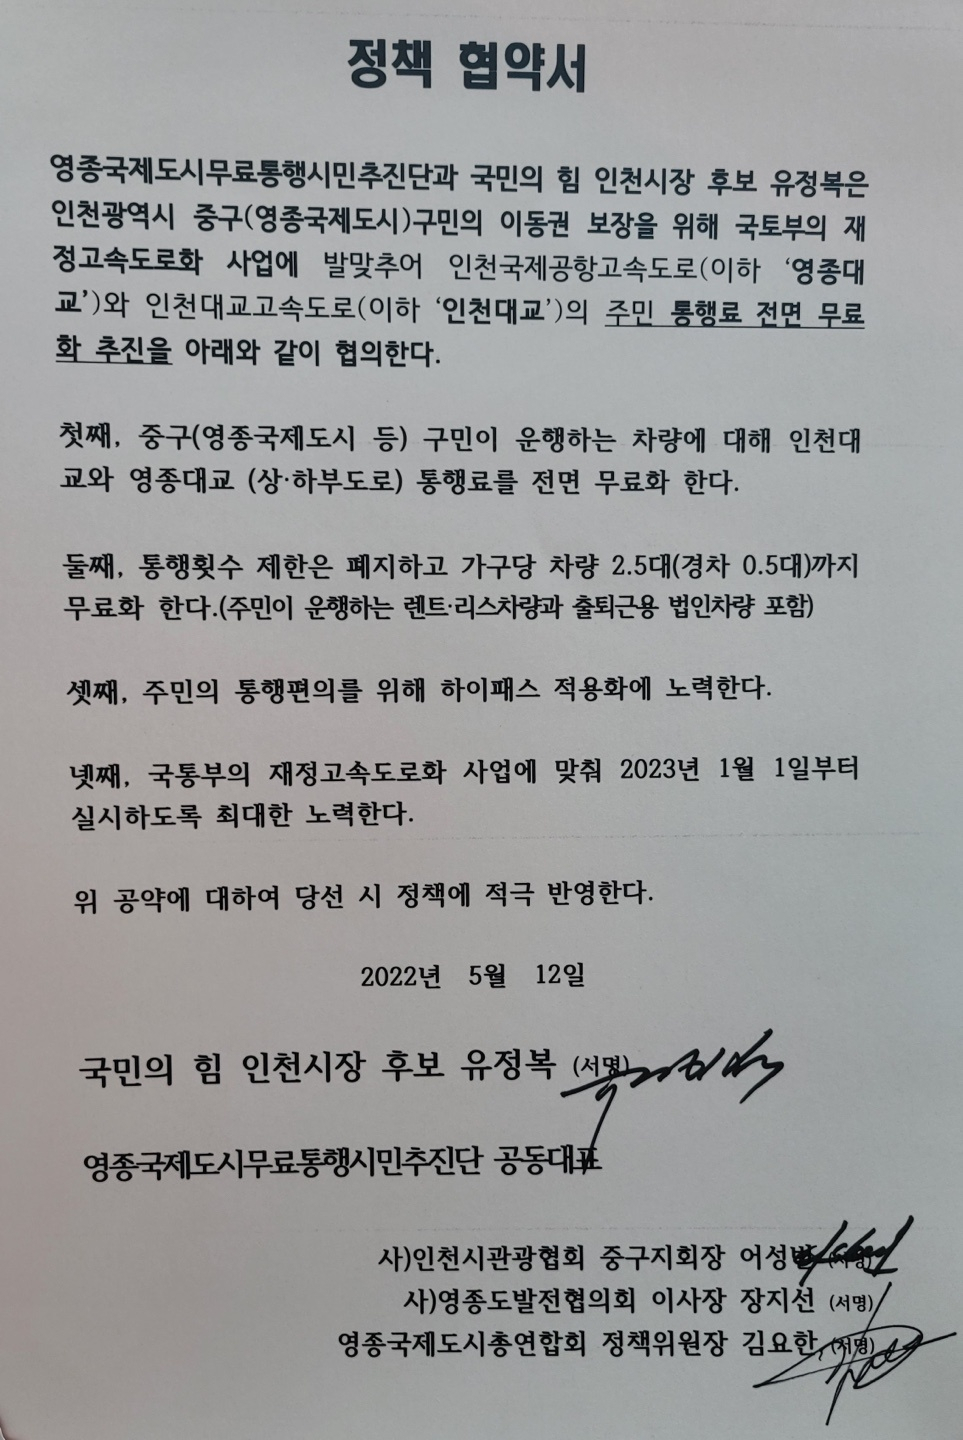 정책 협약서
영종국제도시무료통행시민추진단과 국민의 힘 인천시장 후보 유정복은
인천광역시 중구(영종국제도시)구민의 이동권 보장을 위해 국토부의 재
정고속도로화 사업에 발맞추어 인천국제공항고속도로(이하 ‘영종대
교’)와 인천대교고속도로(이하 ‘인천대교’)의 주민 통행료 전면 무료
화 추진을 아래와 같이 협의한다.
첫째, 중구(영종국제도시 등) 구민이 운행하는 차량에 대해 인천대
교와 영종대교 (상·하부도로) 통행료를 전면 무료화 한다.
둘째, 통행횟수 제한은 폐지하고 가구당 차량 2.5대(경차 0.5대)까지
무료화 한다.(주민이 운행하는 렌트·리스차량과 출퇴근용 법인차량 포함)
셋째, 주민의 통행편의를 위해 하이패스 적용화에 노력한다.
넷째, 국통부의 재정고속도로화 사업에 맞춰 2023년 1월 1일부터
실시하도록 최대한 노력한다.
위 공약에 대하여 당선 시 정책에 적극 반영한다.
2022년 5월 12일
국민의 힘 인천시장 후보 유정복 (서명)
영종국제도시무료통행시민추진단 공동대표
사)인천시관광협회 중구지회장 (서명)
사)영종도발전협의회 이사장 장지선 (서명)
영종국제도시총연합회 정책위원장 김요한, (서명)